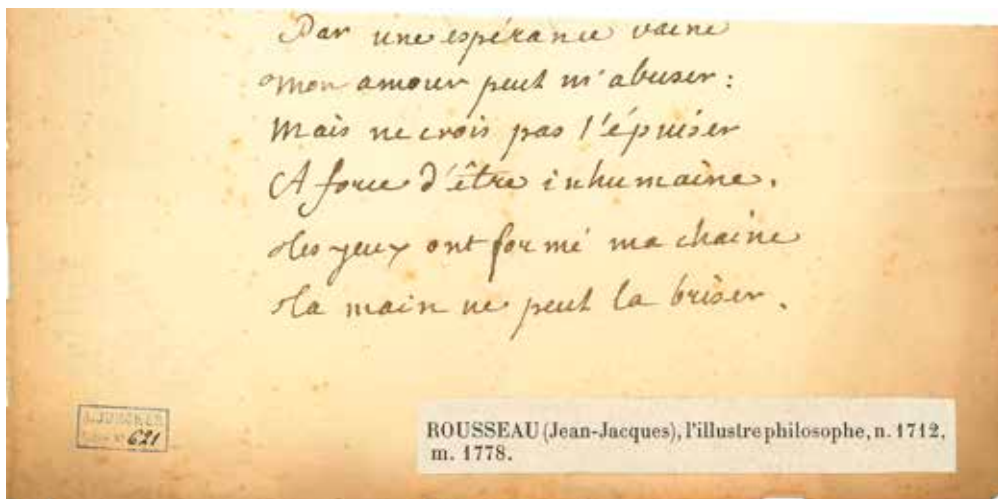 Par une espérance vaine
Mon amour peut m'abuser :
Mais ne crois pas l'épuiser
A force d'être inhumaine.
Tes yeux ont formé ma chaine
Ta main ne peut la briser.
A. JUNCKER
621
ROUSSEAU (Jean-Jacques), l'illustre philosophe, n. 1712,
m. 1778.